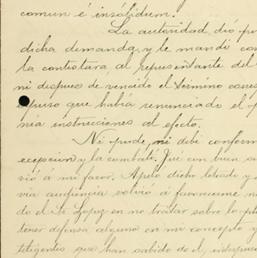 comun é insólidum.
La autoridad dió por
dicha demanda, y le mandó con
la contestara al representante del
ni despues de vencido el término corres
expuso que habia renunciado el p
nia instrucciones al efecto.
No pude, ni debí conform
excepcion y la combatí. Fue con buen
vió á mi favor. Apeló dicho letrado y
via audiencia volvió á favorecerme
do el Sr Lopez en no tratar sobre lo
tener defensa alguna en mi concepto y
litigantes que han salido de el, interpuso